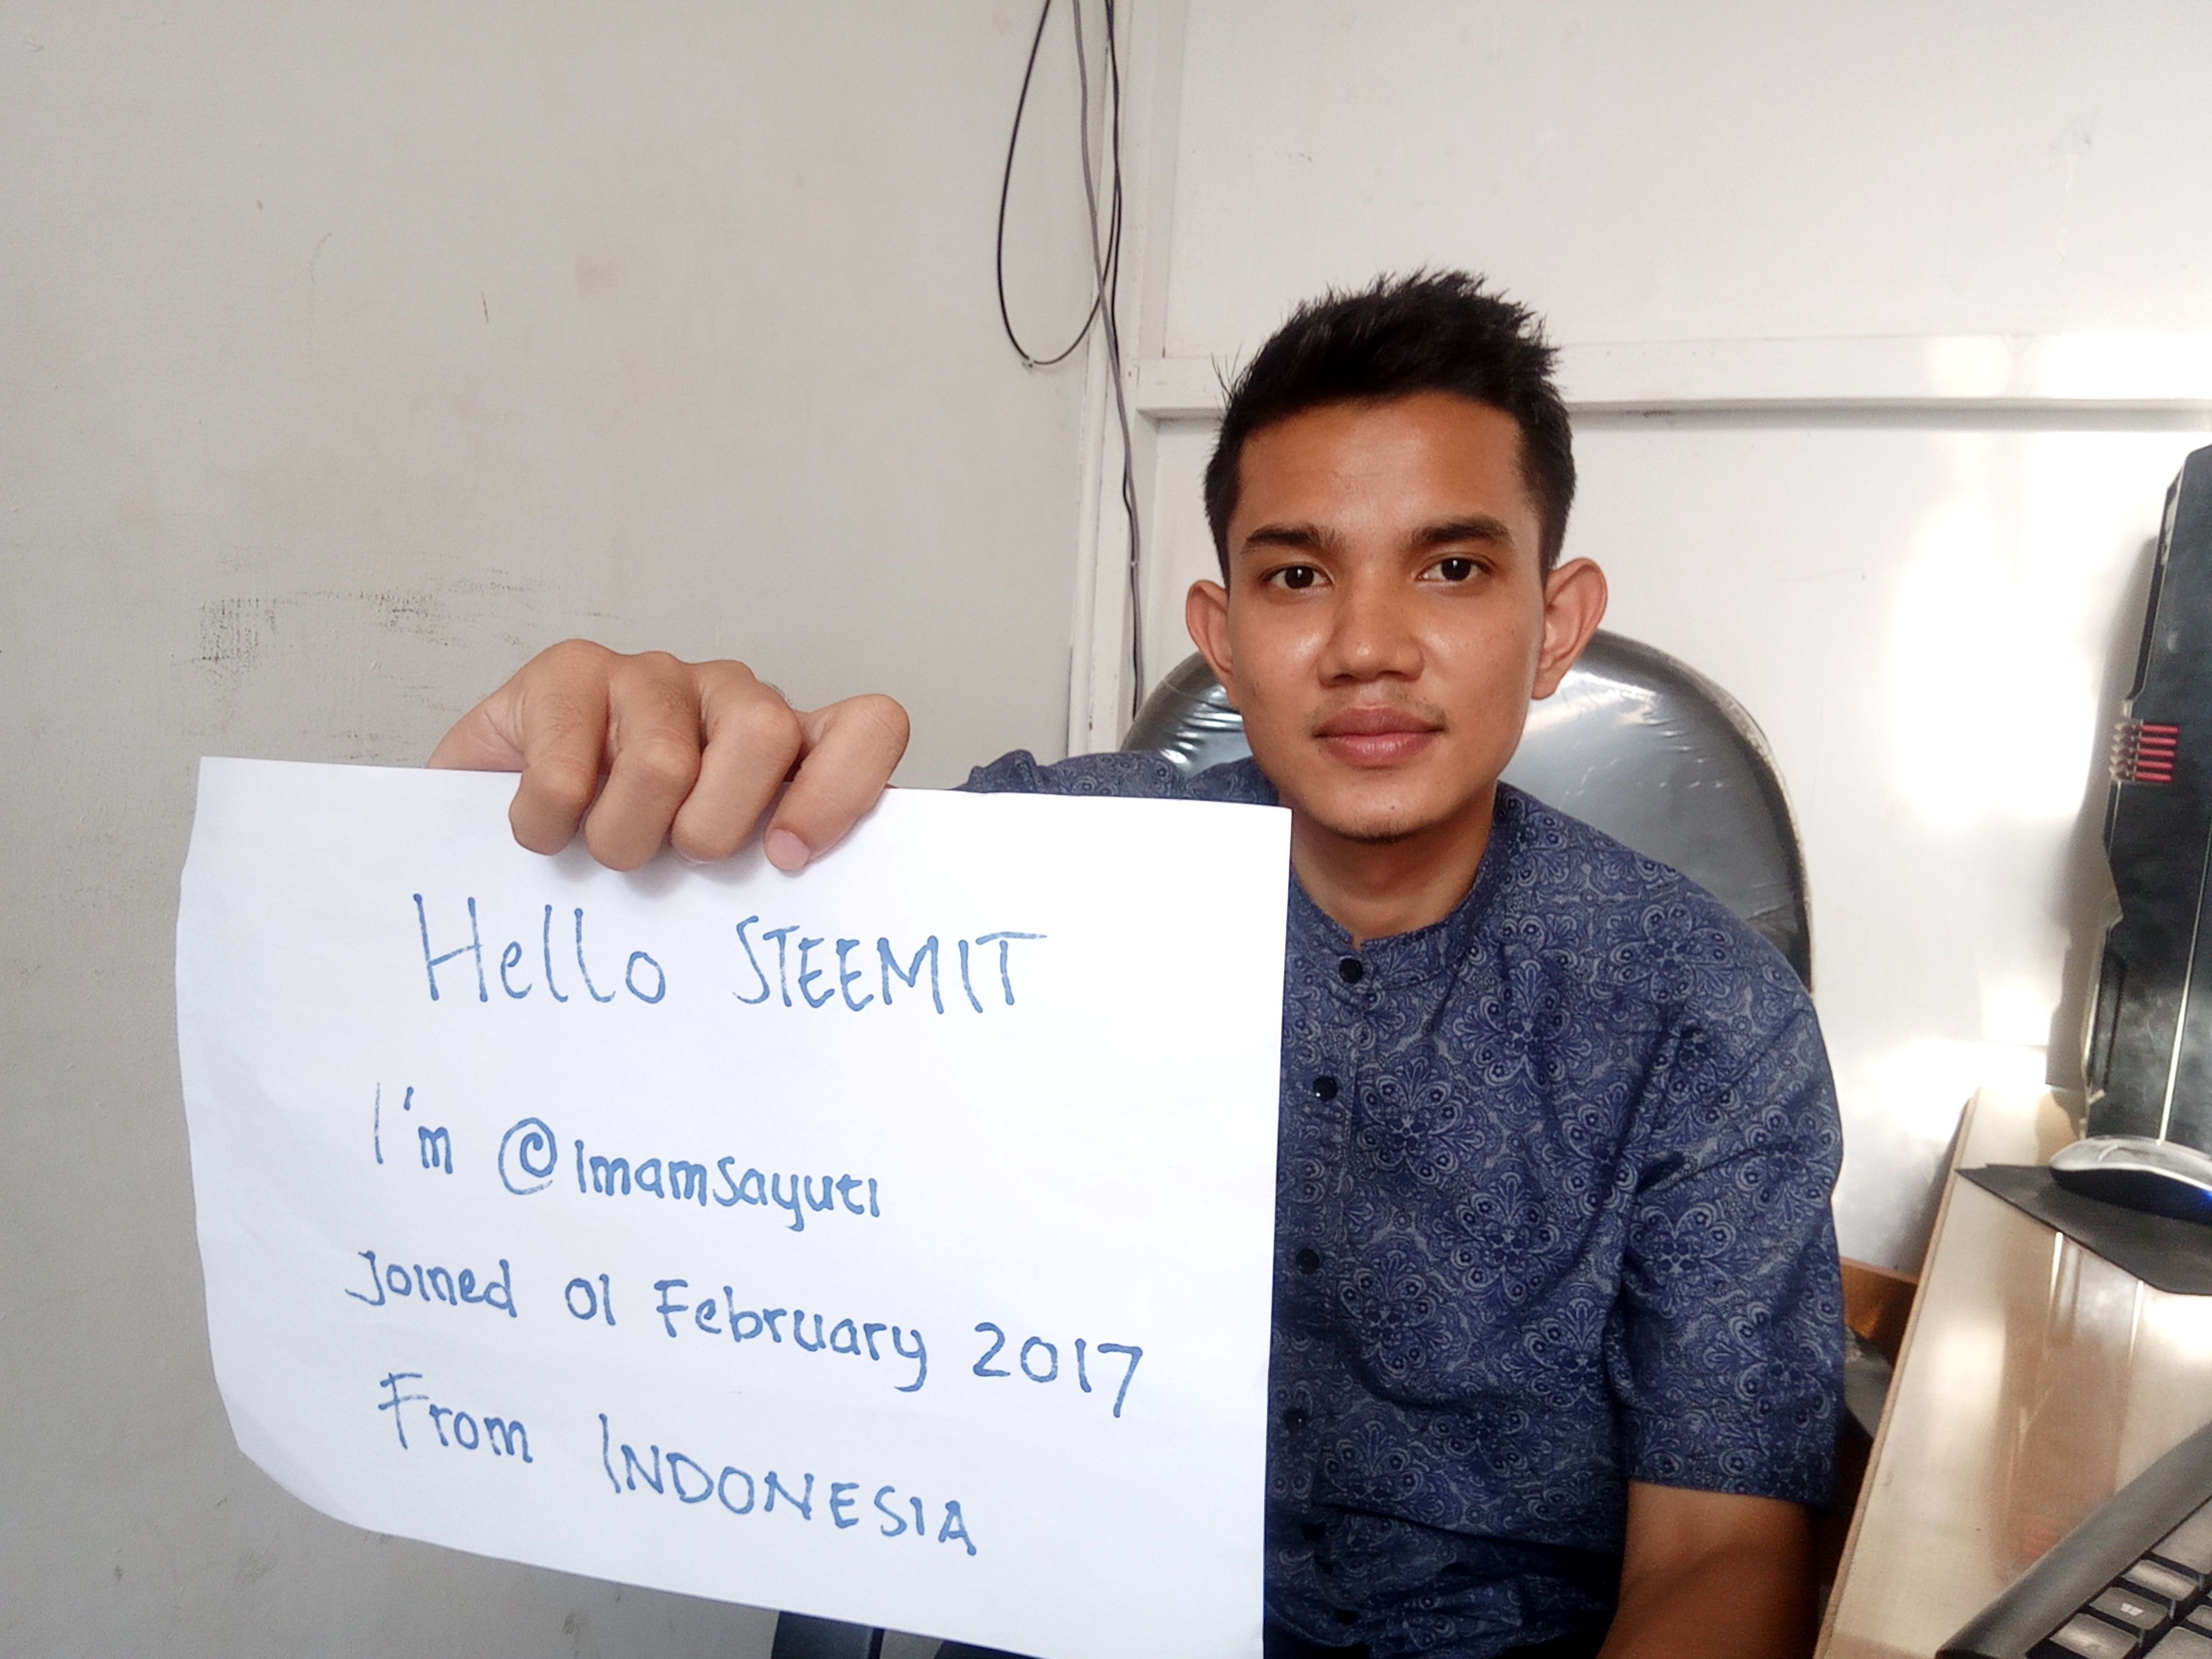 Hello STEEMIT
I'm @imamsayuti
Joined 01 February 2017
From INDONESIA